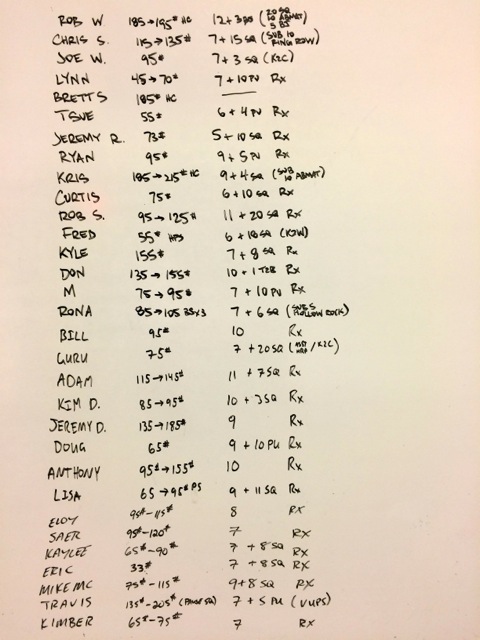 ROB W 185→195# HC 12+3 PS (20 SQ 10 ABMAT 5 BS)
CHRIS S. 115→135# 7+15 SQ (SUB 10 RING ROW)
JOE W. 95# 7+3 SQ (K2C)
LYNN 45→70# 7+10 PU Rx
BRETT S 185# HC —
TSUE 55# 6+4 PU Rx
JEREMY R. 73# 5+10 SQ Rx
RYAN 95# 9+5 PU Rx
KRIS 185→215# HC 9+4 SQ (SUB 10 ABMAT)
CURTIS 75# 6+10 SQ Rx
ROB S. 95→125# 11+20 SQ Rx
FRED 55# HPS 6+18 SQ
KYLE 155# 7+8 SQ Rx
DON 135→155# 10+1 T2B Rx
M 75→95# 7+10 PU Rx
RONA 85→105 BSx3 7+6 SQ (SUB 5 HOLLOW ROCK)
BILL 95# 10 Rx
GURU 75# 7+20 SQ
ADAM 115→145# 11+7 SQ Rx
KIM D. 85→95# 10+3 SQ Rx
JEREMY D. 135→185# 9 Rx
DOUG 65# 9+10 PU Rx
ANTHONY 95#→155# 10 Rx
LISA 65→95# PS 9+11 SQ Rx
ELOY 95#-115# 8 RX
SAER 95#-120# 7 RX
KAYLEE 65#-90# 7+8 SQ RX
ERIC 33# 7+8 SQ RX
MIKE MC 75#-115# 9+8 SQ RX
TRAVIS 135#-205# (PAUSE SQ) 7+5 PU (VUPS)
KIMBER 65#-75# 7 RX